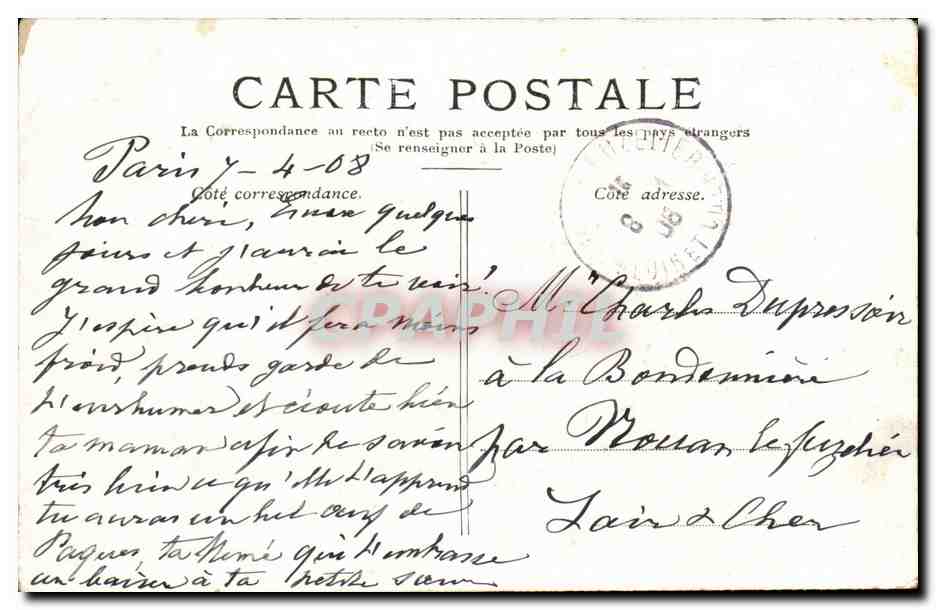 CARTE POSTALE
La Correspondance au recto n'est pas acceptée par tous les pays étrangers
(Se renseigner à la Poste)
Paris 7-4-08
Côté correspondance.
Côté adresse.
mon chéri, Encore quelques
jours et j'aurai le
grand bonheur de te voir.
J'espère qu'il fera moins
froid, prends garde de
t'enrhumer et écoute bien
ta maman afin de savoir
très bien ce qu'elle t'apprend
tu auras un bel oeuf de
Paques, ta Mémé qui t'embrasse
un baiser à ta petite soeur
Mr Charles Dupressoir
à la Bondonnière
par Nouan le fuzelier
Loir & Cher
8 08
LOIR ET CHER
CPAPHIL